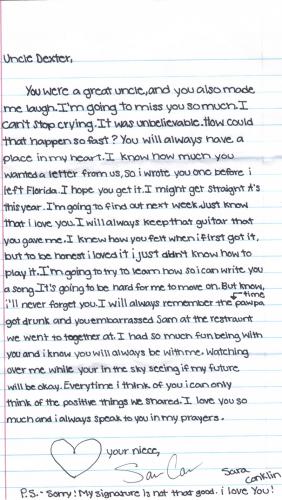 Uncle Dexter,
You were a great uncle, and you also made
me laugh. I'm going to miss you so much. I
can't stop crying. It was unbelievable. How could
that happen so fast? You will always have a
place in my heart. I know how much you
wanted a letter from us, so i wrote you one before i
left Florida. I hope you get it. I might get straight A's
this year. I'm going to find out next week. Just know
that i love you. I will always keep that guitar that
you gave me. I knew how you felt when i first got it,
but to be honest i loved it i just didn't know how to
play it. I'm going to try to learn how so i can write you
a song. It's going to be hard for me to move on. But know,
i'll never forget you. I will always remember the time pawpa
got drunk and you embarrassed Sam at the restraunt
we went to together at. I had so much fun being with
you and i know you will always be with me. Watching
over me while your in the sky seeing if my future
will be okay. Everytime i think of you i can only
think of the positive things we shared. I love you so
much and i always speak to you in my prayers.
your niece,
Sara
Conklin
P.S. - Sorry! My signature is not that good. i love You!